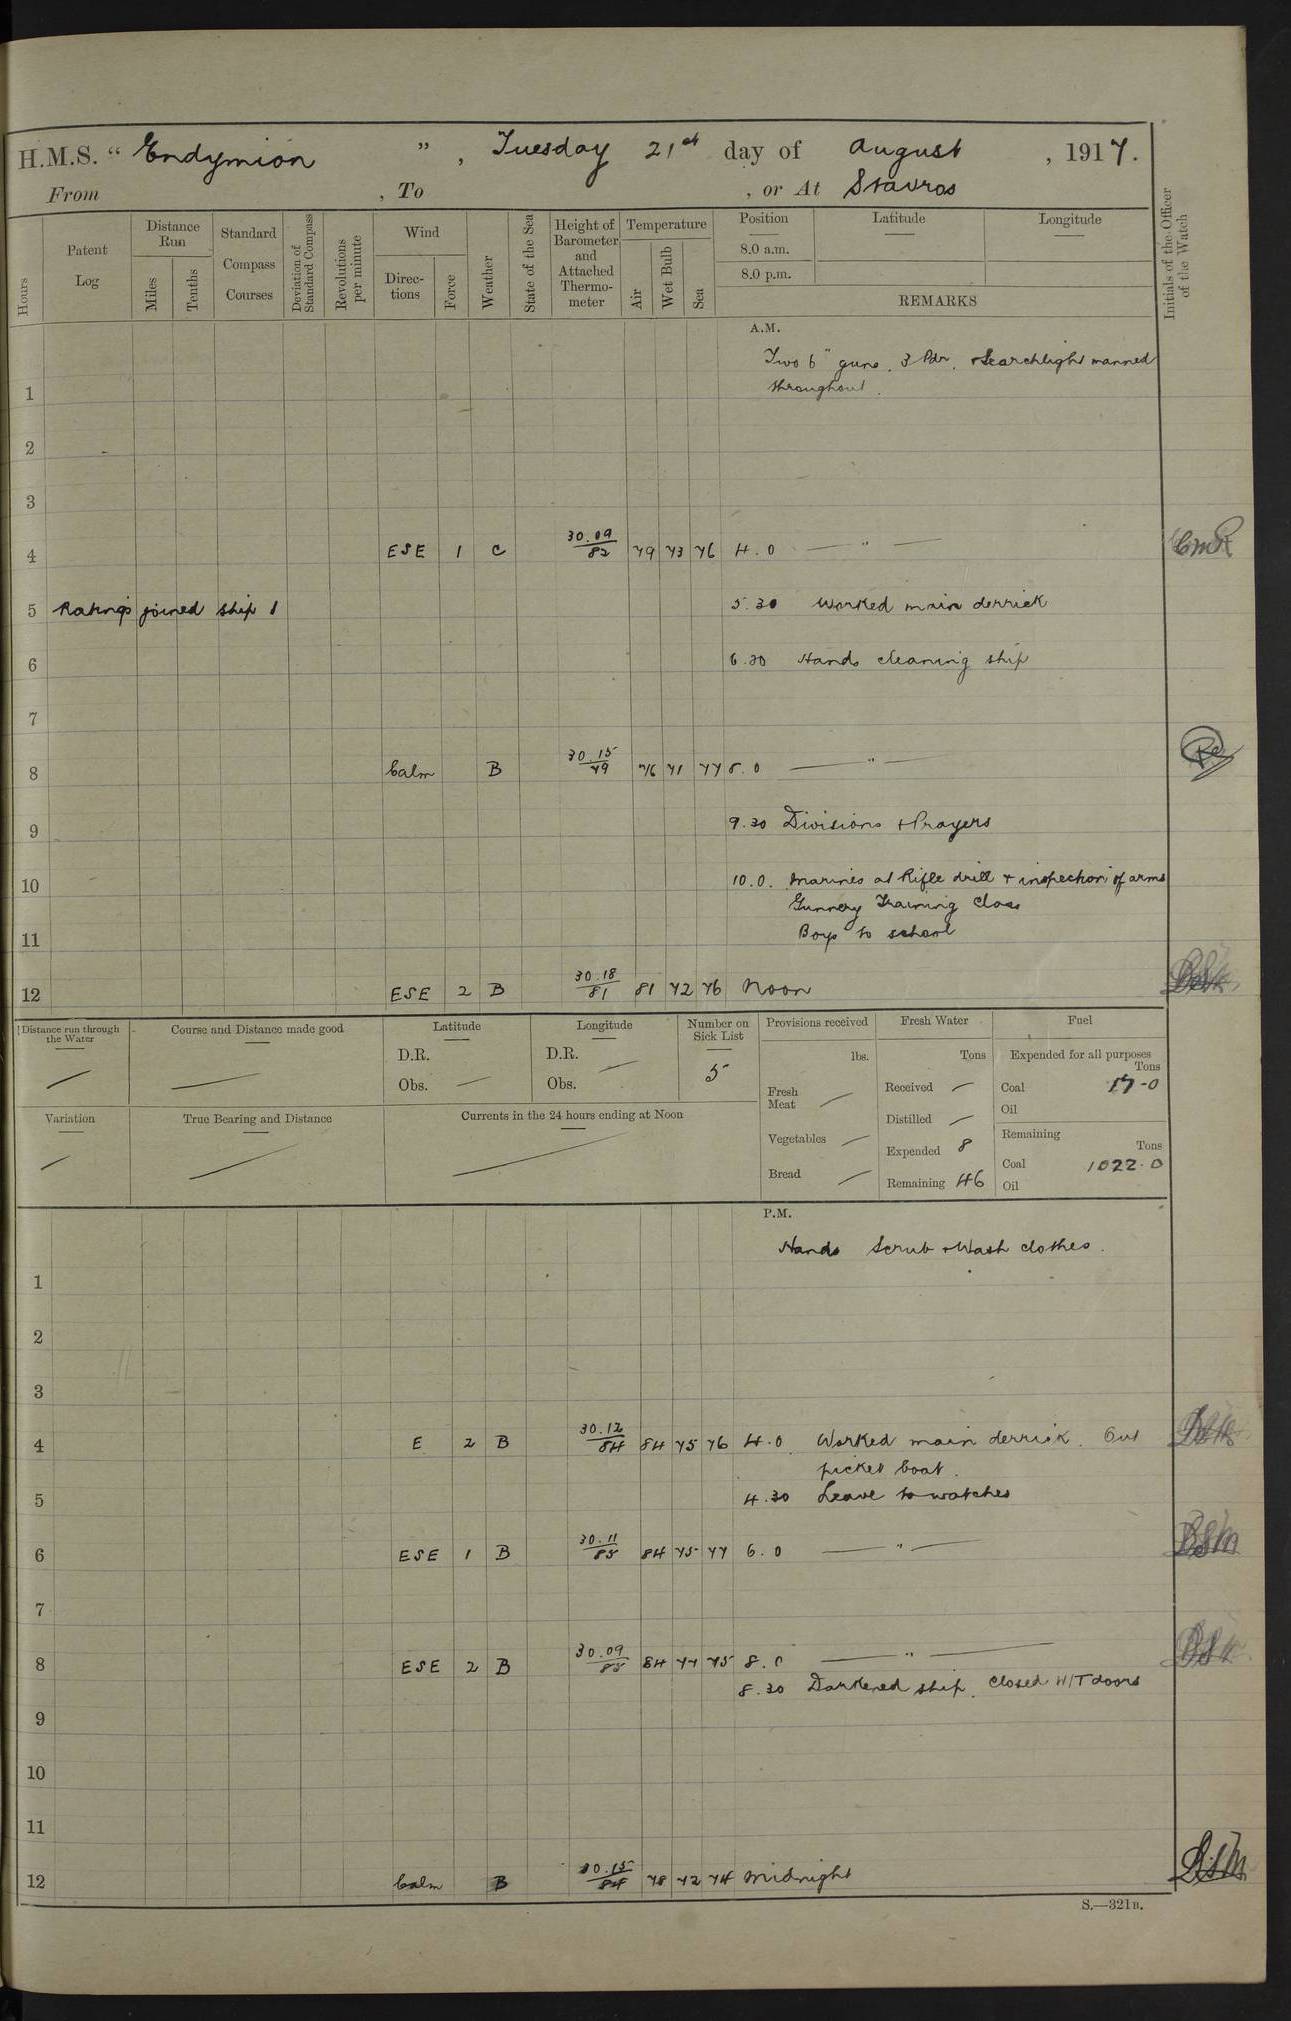 H.M.S. “ Endymion ” , Tuesday 21st day of August , 1917.
From , To , or At Stavros
Hours
Patent Log
Distance Run
Miles
Tenths
Standard Compass Courses
Deviation of Standard Compass
Revolutions per minute
Wind
Directions
Force
Weather
State of the Sea
Height of Barometer and Attached Thermometer
Temperature
Air
Wet Bulb
Sea
Position
8.0 a.m.
8.0 p.m.
Latitude
Longitude
REMARKS
Initials of the Officer of the Watch
A.M.
Two 6" guns. 3 Pdr. + Searchlight manned
throughout.
1
2
3
4 ESE 1 C 30.09/82 79 73 76 4.0 — " —
5 Ratings joined ship 1 5.30 Worked main derrick
6 6.30 Hands cleaning ship
7
8 Calm B 30.15/79 76 71 77 8.0 — " —
9 9.30 Divisions + Prayers
10 10.0. Marines at Rifle drill + inspection of arms
Gunnery Training Class
11 Boys to school
12 ESE 2 B 30.18/81 81 72 76 Noon
Distance run through the Water
Course and Distance made good
Latitude
D.R.
Obs.
Longitude
D.R.
Obs.
Number on Sick List
5
Variation
True Bearing and Distance
Currents in the 24 hours ending at Noon
Provisions received
lbs.
Fresh Meat
Vegetables
Bread
Fresh Water
Tons
Received
Distilled
Expended 8
Remaining 46
Fuel
Expended for all purposes
Tons
Coal 17-0
Oil
Remaining
Tons
Coal 1022.0
Oil
P.M.
Hands Scrub + Wash clothes.
1
2
3
4 E 2 B 30.12/84 84 75 76 4.0. Worked main derrick. Out
picket boat.
5 4.30 Leave to watches
6 ESE 1 B 30.11/85 84 75 77 6.0 — " —
7
8 ESE 2 B 30.09/85 84 77 75 8.0 — " —
8.30 Darkened ship. Closed W/T doors
9
10
11
12 Calm B 30.15/84 78 72 74 Midnight
S.—321B.